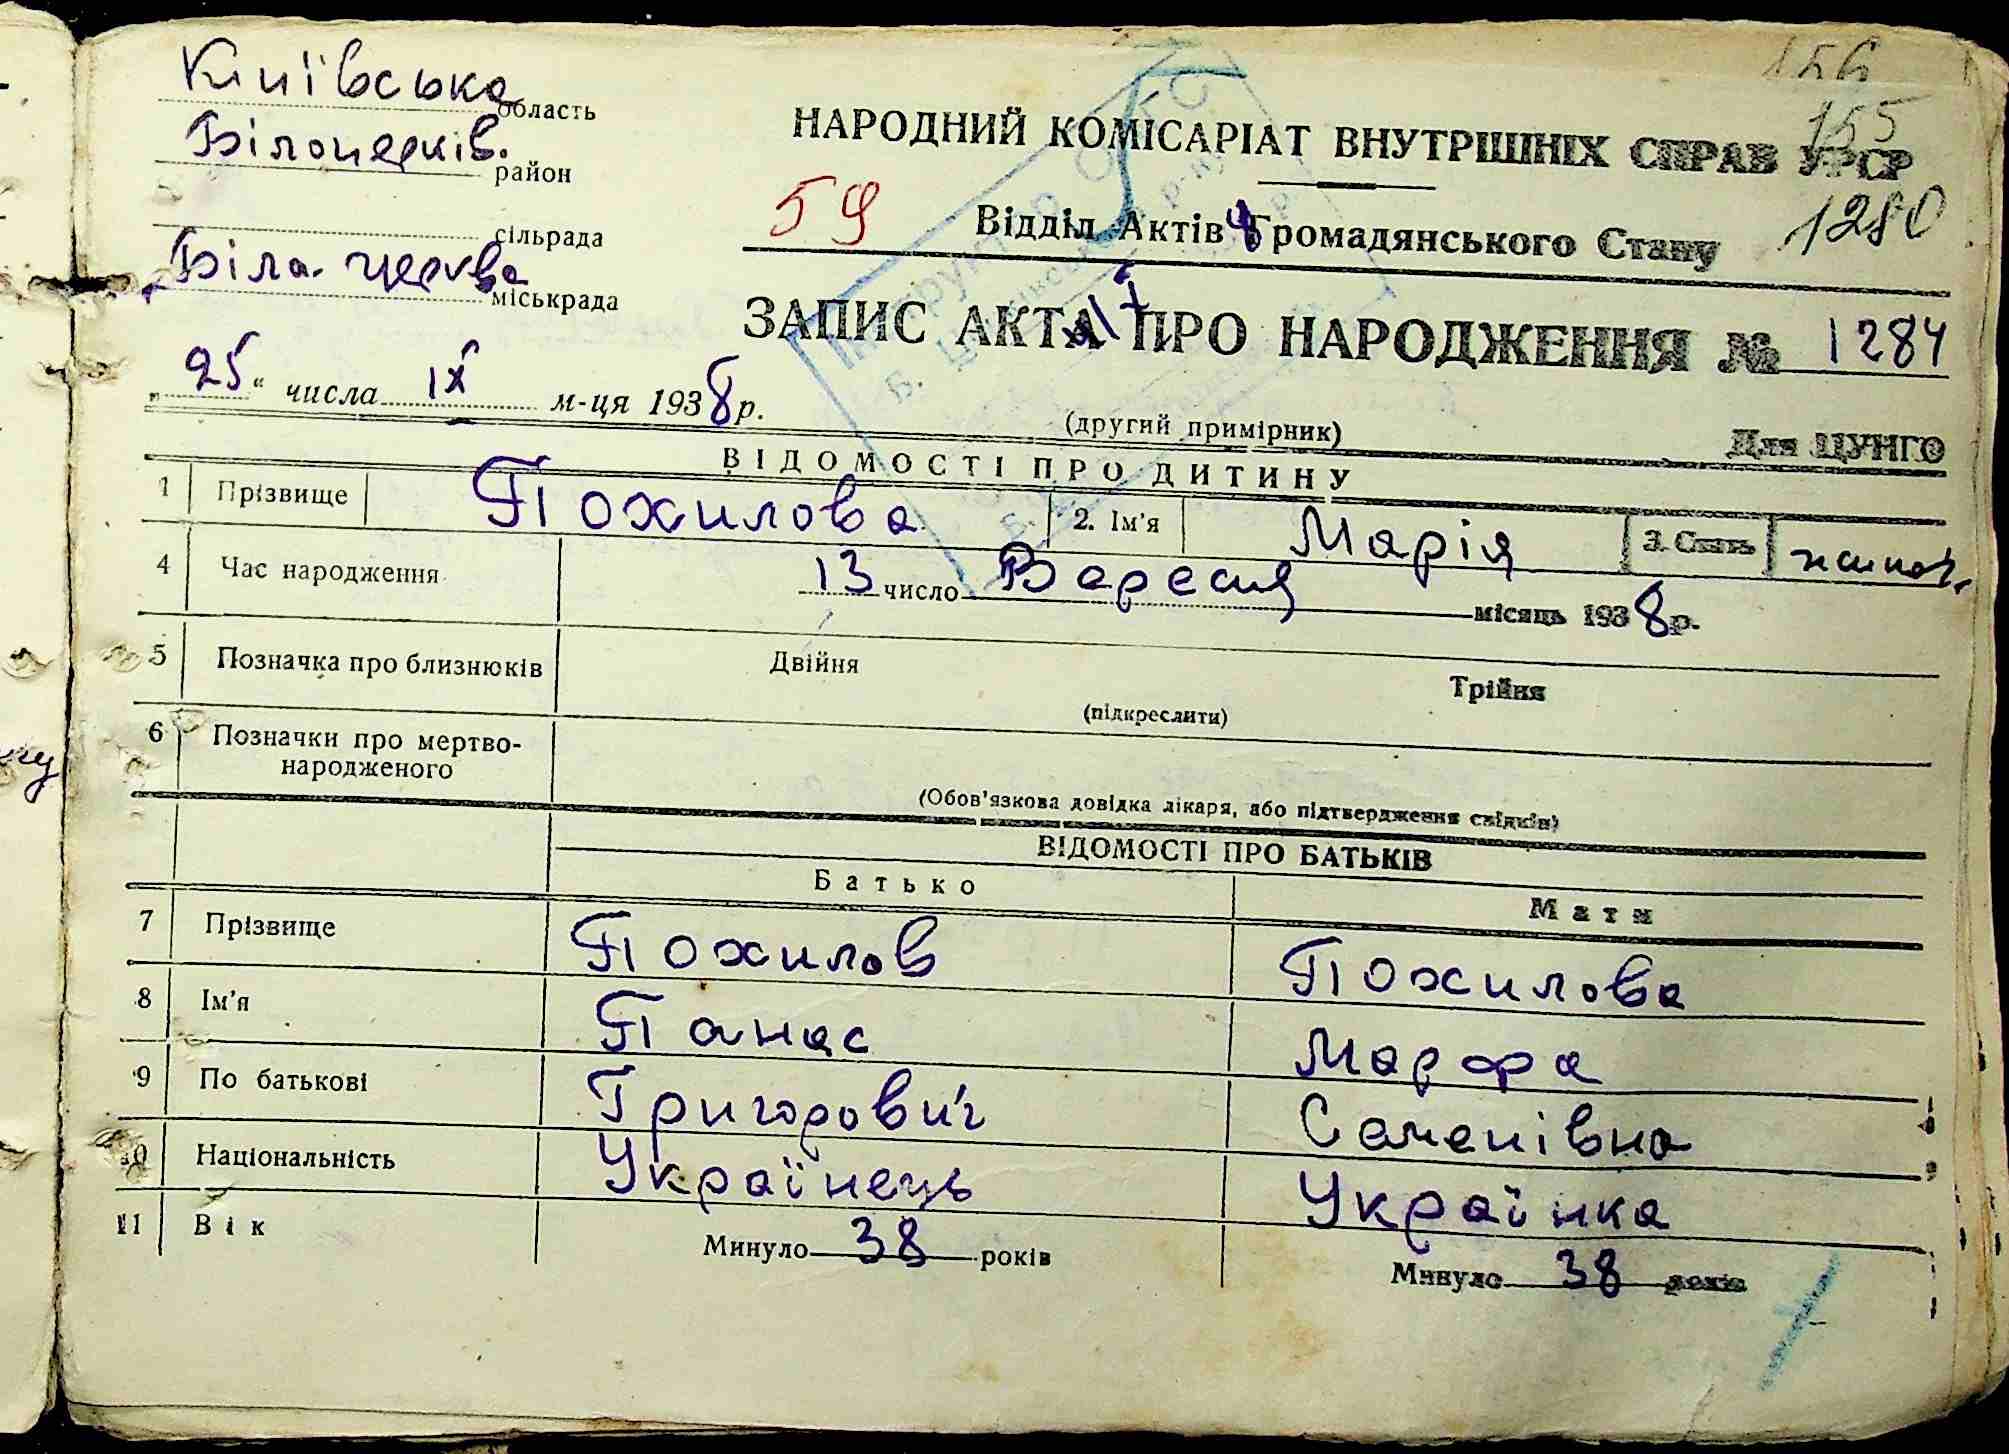 Київська область
Білоцерків. район
сільрада
Біла-церква міськрада
156
155
1280
НАРОДНИЙ КОМІСАРІАТ ВНУТРІШНІХ СПРАВ УРСР
59
Відділ Актів Громадянського Стану
ЗАПИС АКТА ПРО НАРОДЖЕННЯ № 1284
„25" числа IX м-ця 1938 р.
(другий примірник)
Для ЦУНГО
ВІДОМОСТІ ПРО ДИТИНУ
1 Прізвище Похилова 2. Ім'я Марія 3. Стать жіноч.
4 Час народження 13 число Вересня місяць 1938 р.
5 Позначка про близнюків Двійня Трійня
(підкреслити)
6 Позначки про мертво-
народженого
(Обов'язкова довідка лікаря, або підтвердження свідків)
ВІДОМОСТІ ПРО БАТЬКІВ
Батько Мати
7 Прізвище Похилов Похилова
8 Ім'я Панас Марфа
9 По батькові Григорович Семенівна
10 Національність Українець Українка
11 Вік Минуло 38 років Минуло 38 років